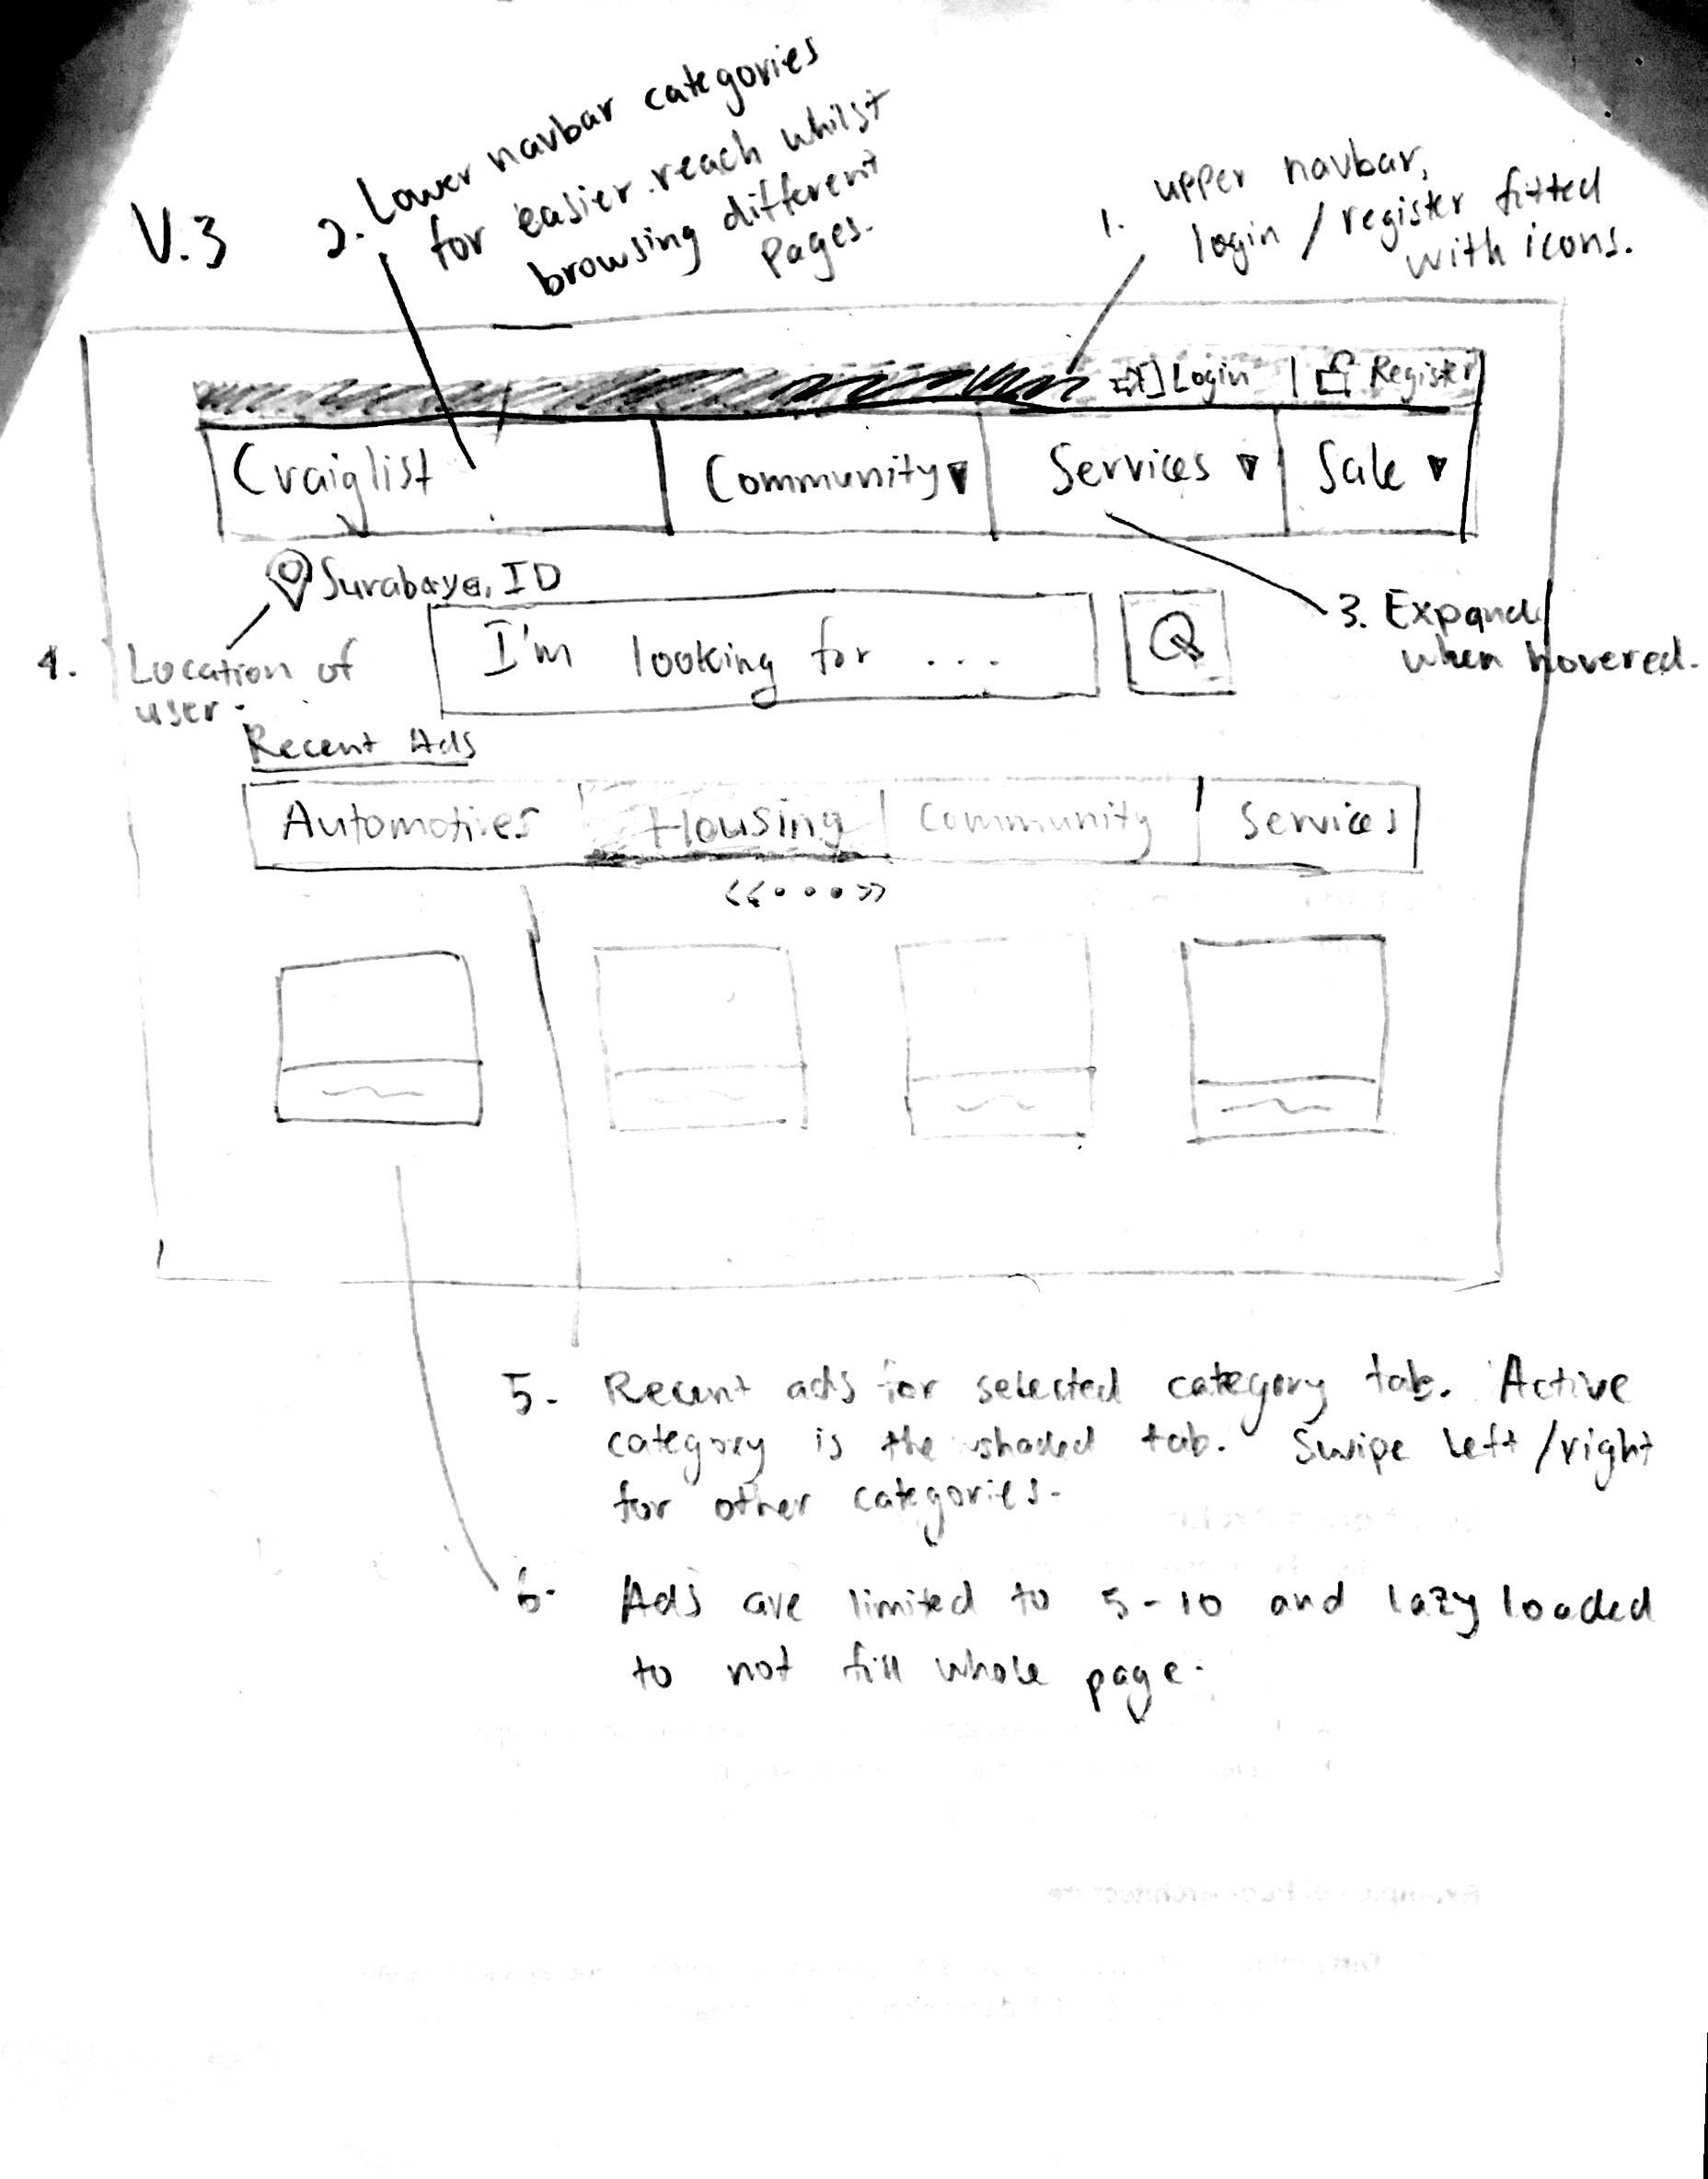 V.3
2. Lower navbar categories
for easier reach whilst
browsing different
pages.
1. upper navbar,
login / register fitted
with icons.
Login | Register
Craiglist
Community ▼
Services ▼
Sale ▼
Surabaya, ID
I'm looking for ...
3. Expand
when hovered.
4. Location of
user.
Recent Ads
Automotives
Housing
Community
Services
<<•••>>
5. Recent ads for selected category tab. Active
category is the shaded tab. Swipe left/right
for other categories.
6. Ads are limited to 5-10 and lazy loaded
to not fill whole page.